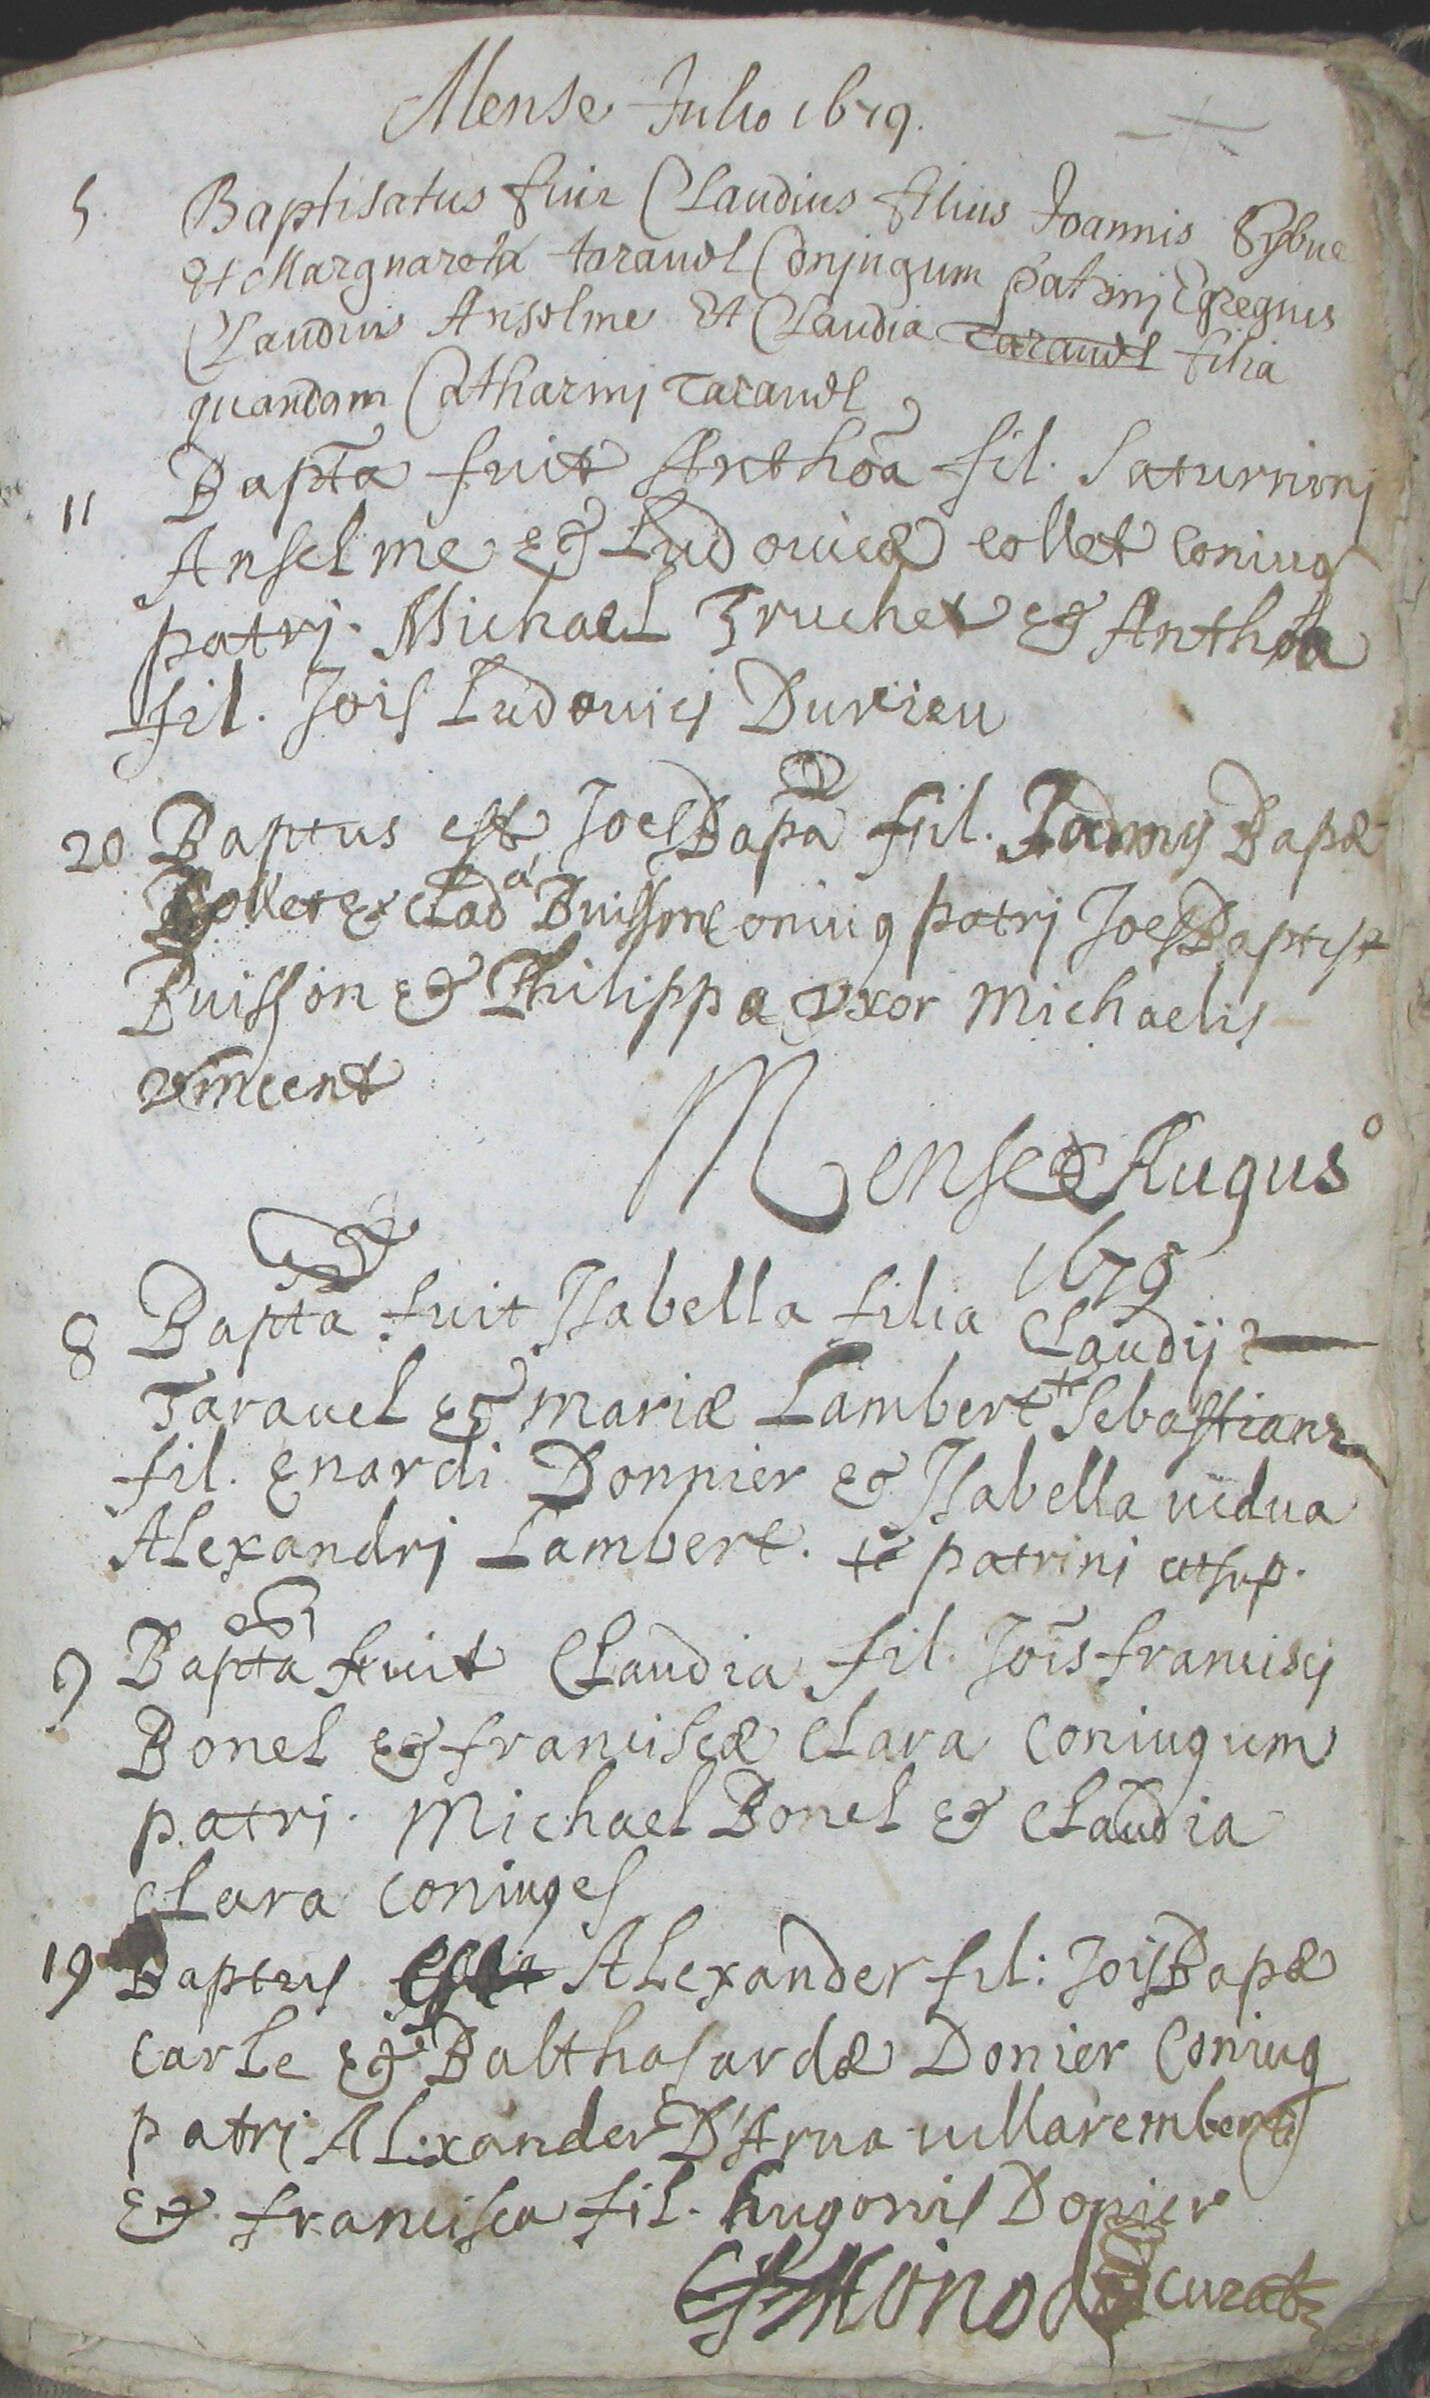 Mense Julio 1679.
5. Baptisatus fuit Claudius filius Joannis Sybue
Et Margnaretæ tarauel Conjugum patrinj Egregius
Claudius Anselme Et Claudia Tarauel filia
quandam Catharinj Tarauel
11 Bapta fuit Anthoa fil. Saturninj
Anselme & Ludouicæ collet coniug
patrj. Michael Truchet & Anthoa
fil. Jois Ludouicj Durieu
20 Baptus est JoesBapa fil. Joannis Bapæ
Collet & clad a Buisson coniug patrj JoesBaptist
Buisson & Philippa vxor Michaelis
vincent
Mense Augus o
1679
8 Bapta fuit Isabella filia Claudij
Tarauel & mariæ Lambert + Sebastianz
fil. enardi Donnier & Isabella uidua
Alexandrj Lambert. + patrini utsup.
9 Bapta fuit Claudia fil. Jois francisci
Bonel & franciscæ clara coniugum
patrj. Michael Bonel & claudia
clara coniuges
19 Baptus Alexander fil: JoisBapæ
carle & Balthasardæ Donier Coniug
patrj Alexander D'Arua uillarembert
& francisca fil. hugonis Donier
Monod curatz